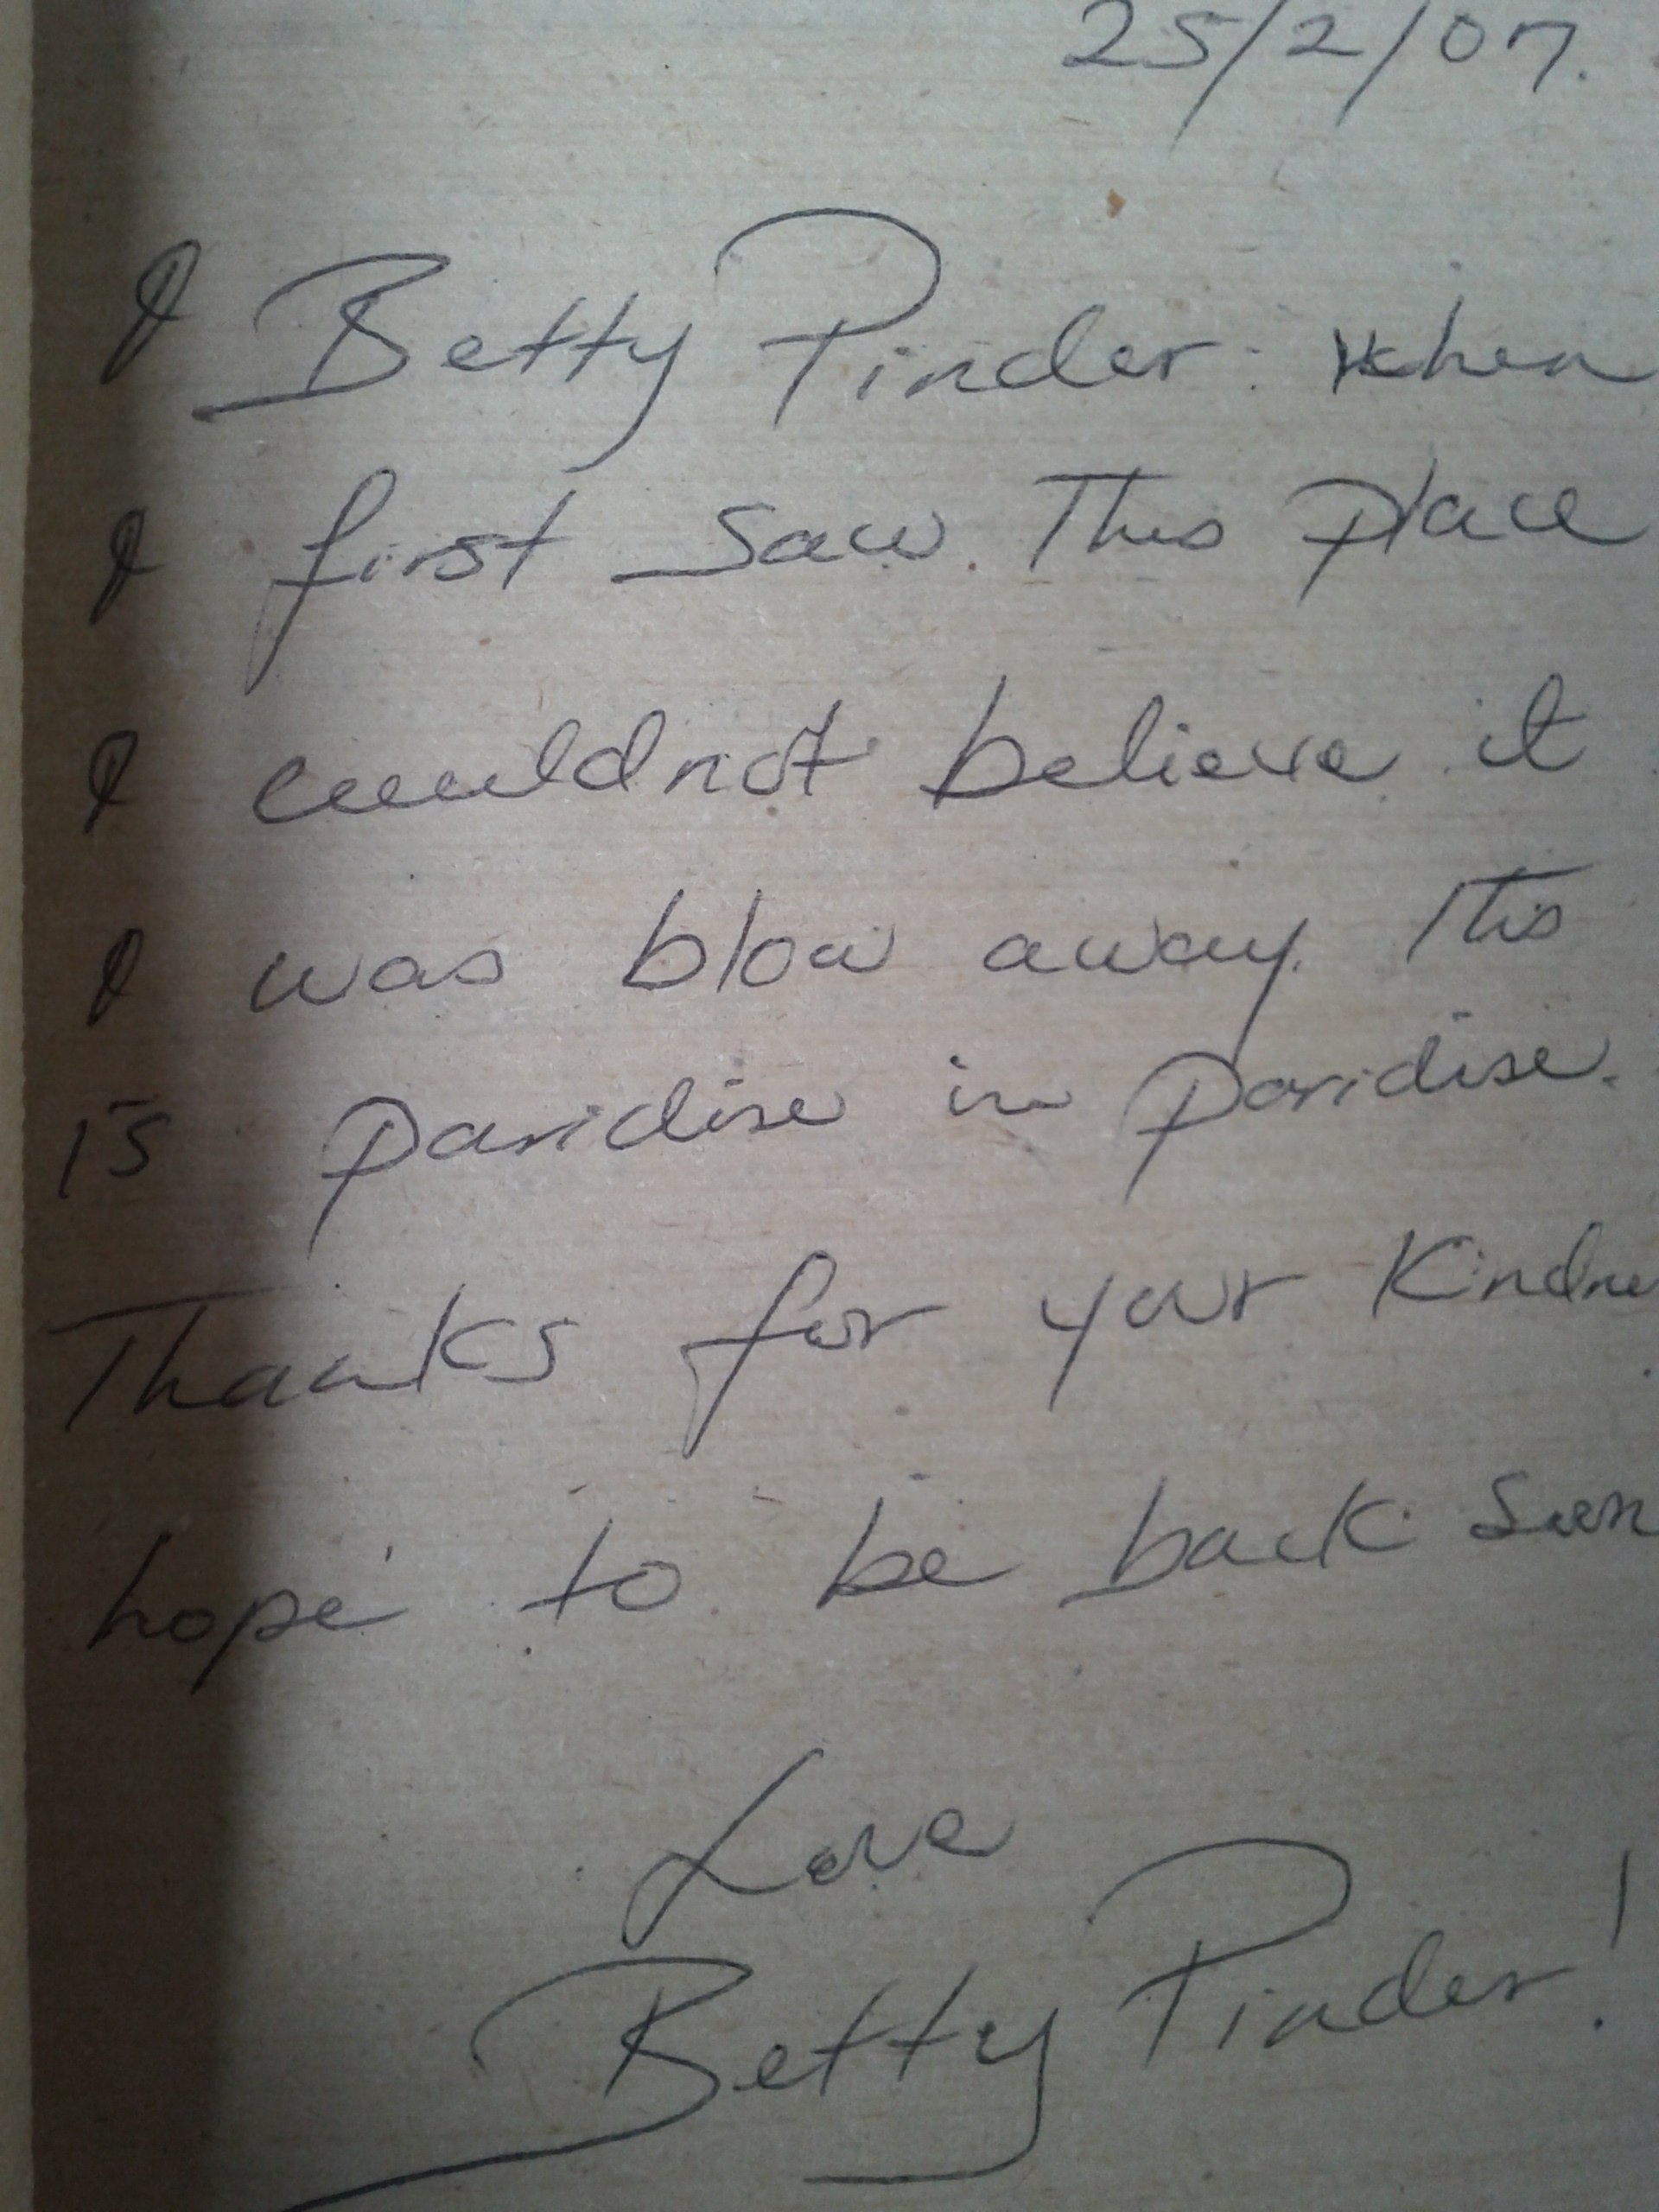 25/2/07.
I Betty Pinder: when
I first saw. This Place
I couuldnot believe it
I was blow away. This
is paridise in paridise.
Thanks for your Kindne
hope to be back soon
Love
Betty Pinder!